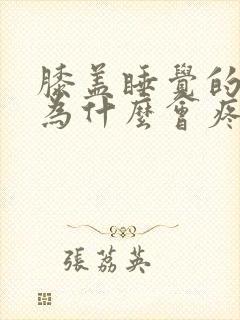 膝盖睡覺的
為什麼會疼
張荔英